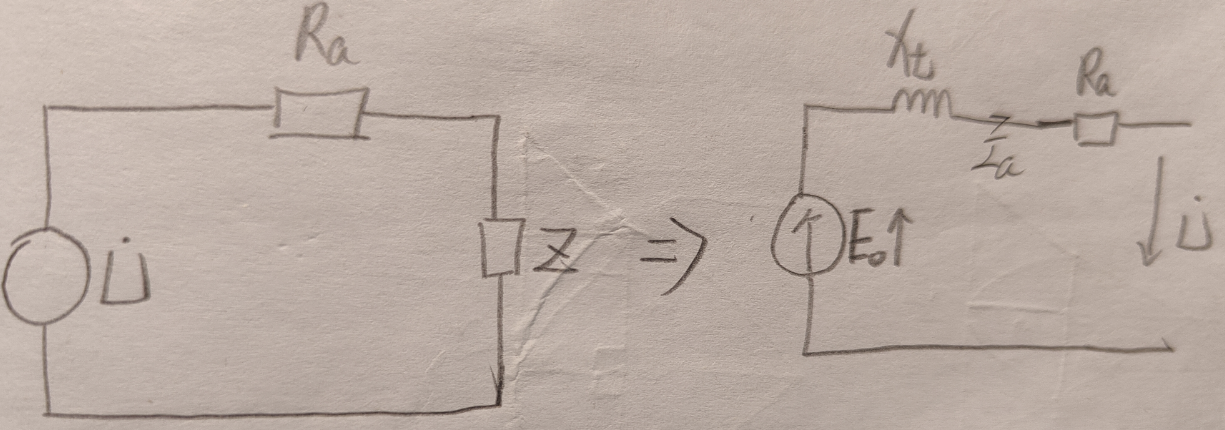 Ra
U̇
Z
⇒
Xt
Ra
İa
E₀↑
U̇